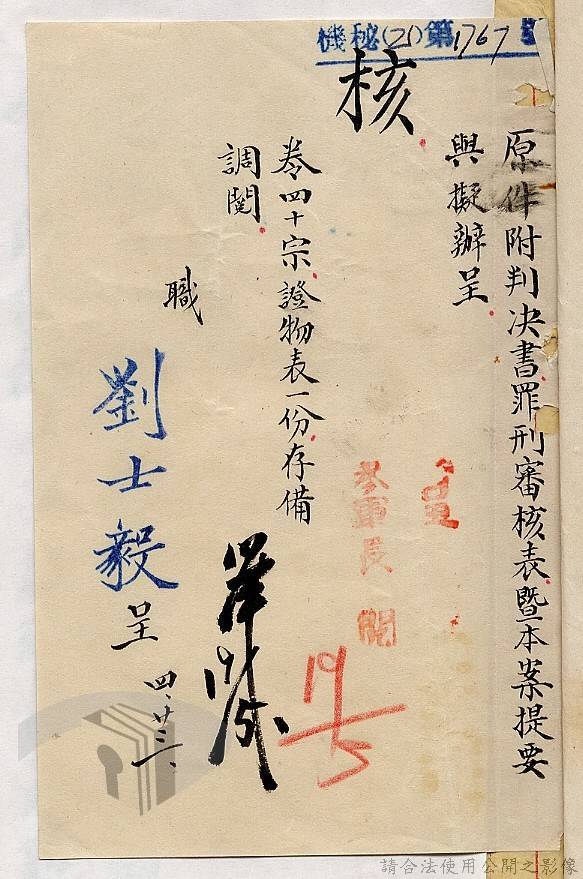 機秘(21)第1767號
原件附判決書罪刑審核表暨本案提要
與擬辦呈
核
卷四十宗證物表一份存備
調閱
職
劉士毅呈 四、廿三、
參軍長 閱
19/5
請合法使用公開之影像